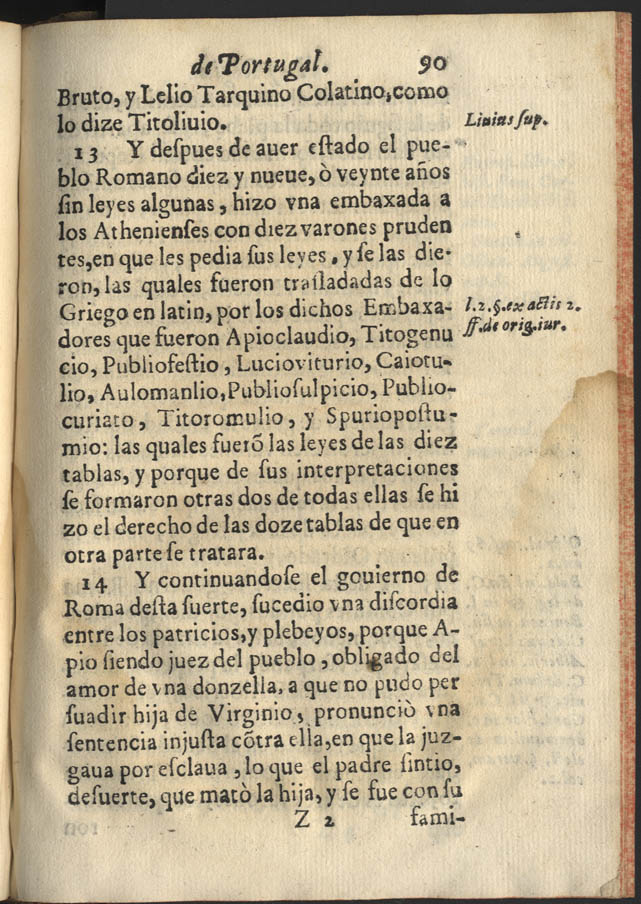 de Portugal. 90
Bruto, y Lelio Tarquino Colatino, como
lo dize Titoliuio.
Liuius ſup.
13 Y deſpues de auer eſtado el pue-
blo Romano diez y nueue, ò veynte años
ſin leyes algunas, hizo vna embaxada a
los Athenienſes con diez varones pruden
tes, en que les pedia ſus leyes, y ſe las die-
ron, las quales fueron traſladadas de lo
Griego en latin, por los dichos Embaxa-
l. 2. §. ex actis 2.
ff. de orig. iur.
dores que fueron Apioclaudio, Titogenu
cio, Publiofeſtio, Lucioviturio, Caiotu-
lio, Aulomanlio, Publioſulpicio, Publio-
curiato, Titoromulio, y Spuriopoſtu-
mio: las quales fuerõ las leyes de las diez
tablas, y porque de ſus interpretaciones
ſe formaron otras dos de todas ellas ſe hi
zo el derecho de las doze tablas de que en
otra parte ſe tratara.
14 Y continuandoſe el gouierno de
Roma deſta ſuerte, ſucedio vna diſcordia
entre los patricios, y plebeyos, porque A-
pio ſiendo juez del pueblo, obligado del
amor de vna donzella, a que no pudo per
ſuadir hija de Virginio, pronunciò vna
ſentencia injuſta cõtra ella, en que la juz-
gaua por eſclaua, lo que el padre ſintio,
deſuerte, que matò la hija, y ſe fue con ſu
Z 2 fami-